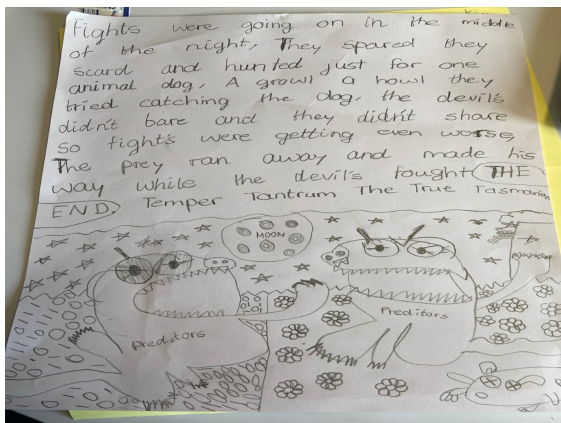 Fights were going on in the middle
of the night, They spared they
scard and hunted just for one
animal dog, A growl a howl they
tried catching the dog, the devil's
didn't bare and they didn't share
so fight's were getting even worse,
The prey ran away and made his
way while the devil's fought THE
END. Temper Tantrum The True Tasmanian
MOON
Preditors
Preditors